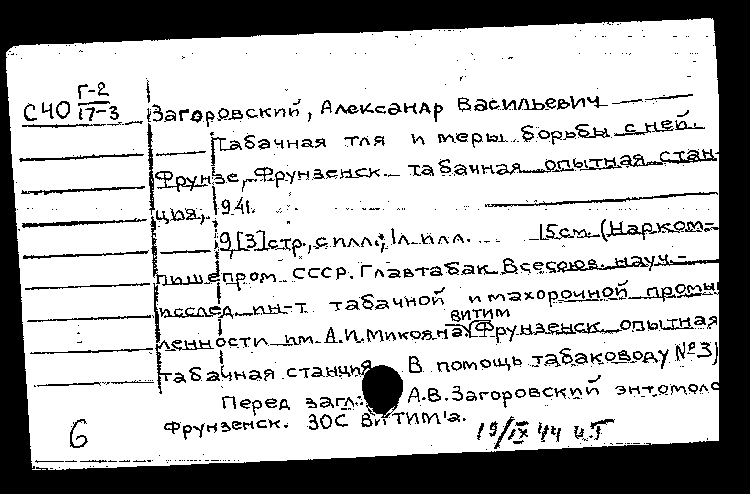 Г-2
С40 17-3 Загоровский, Александр Васильевич
Табачная тля и меры борьбы с ней.
Фрунзе, Фрунзенск табачная опытная стан-
ция, 1941.
9,[3]стр., с илл.; 1л. илл. 15см. (Нарком-
пищепром СССР. Главтабак Всесоюз. науч.-
исслед. ин-т табачной и махорочной промы
ВИТИМ
ленности им. А.И.Микояна) Фрунзенск. опытная
табачная станция. В помощь табаководу №3)
Перед загл.: А.В.Загоровский энтомоло
6 Фрунзенск. ЗОС ВИТИМ'а.
19/IX 44